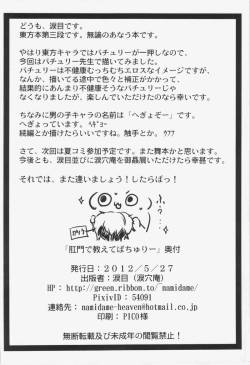 どうも、涙目です。
東方本第三段です。無論のあなう本です。
やはり東方キャラではパチュリーが一押しなので、
今回はパチュリー先生で描いてみました。
パチュリーは不健康むっちむちエロスなイメージですが、
なんか、描いてる途中で色々と補正がかかって、
結果的にあんまり不健康そうなパチュリーじゃ
なくなりましたが、楽しんでいただけたのなら幸いです。
ちなみに男の子キャラの名前は「へぎょぞー」です。
へぎょっています。ﾍｷﾞｮｰ
続編とか描けたらいいですね。触手とか。ｳﾌﾌ
さて、次回は夏コミ参加予定です。また舞本かと思います。
今後とも、涙目並びに涙穴庵を御贔屓いただけたら幸甚です。
それでは、また逢いましょう！したらばっ！
「肛門で教えてぱちゅりー」奥付
発行日：2012／5／27
出版者：涙目（涙穴庵）
HP：http://green.ribbon.to/~namidame/
PixivID：54091
連絡先：namidame-heaven@hotmail.co.jp
印刷：PICO様
無断転載及び未成年の閲覧禁止！